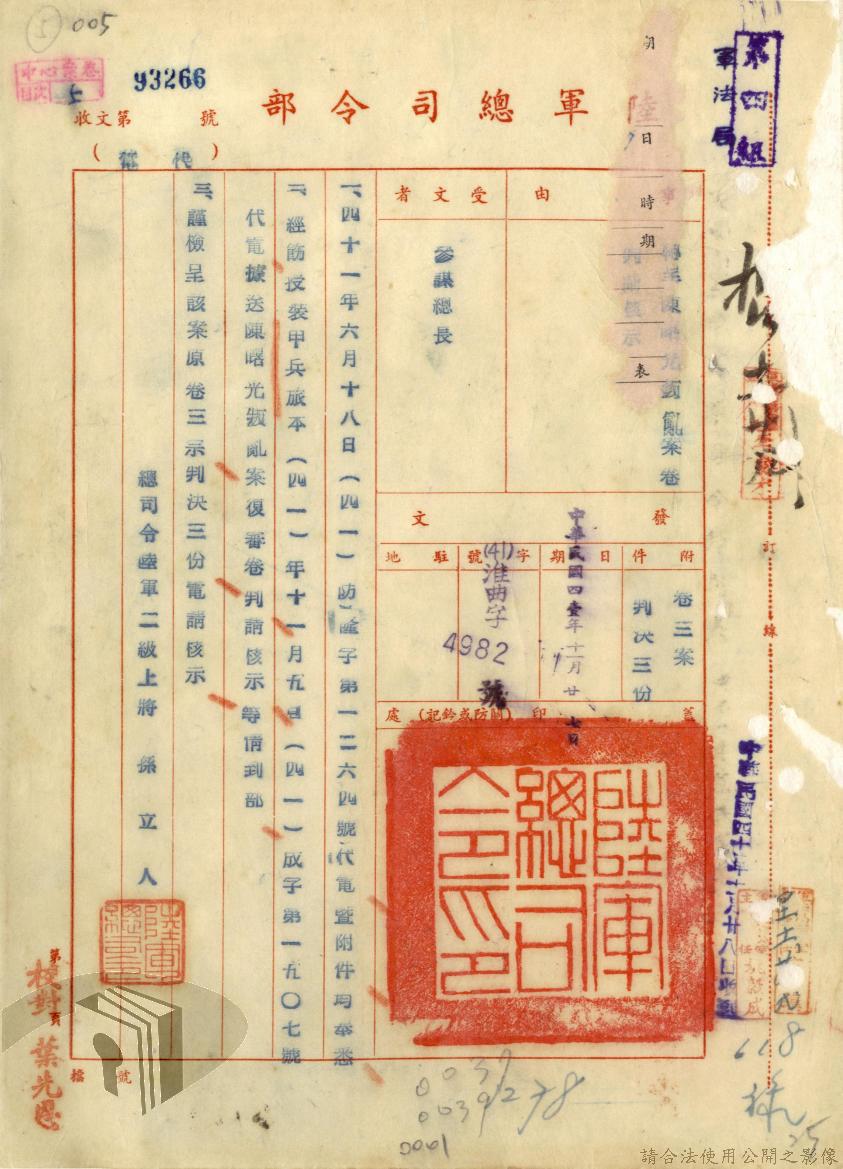 005
5
中心案卷
目次 5
93266
收文第 號
陸軍總司令部
(代電)
軍法局
第四組
日
時
期
表
事由
轉呈陳曙光叛亂案卷
判請核示
受文者
參謀總長
發文
附件
卷三案
判決三份
日期
中華民國四壹年十一月廿七日
字號
(41)淮典字
4982
號
駐地
蓋印(關防或鈐記)處
陸軍
總司
令印
一、四十一年六月十八日(四一)防隆字第一二六四號代電暨附件均奉悉
二、經飭援裝甲兵旅本(四一)年十一月五日(四一)成字第一五〇七號
代電據送陳曙光叛亂案復審卷判請核示等情到部
三、謹檢呈該案原卷三宗判決三份電請核示
總司令陸軍二級上將 孫立人
訂線
中華民國四十一年十一月廿八日收到
618
25
第 頁
校對 葉光恩
檔 號
0039
0039278
0001
請合法使用公開之影像